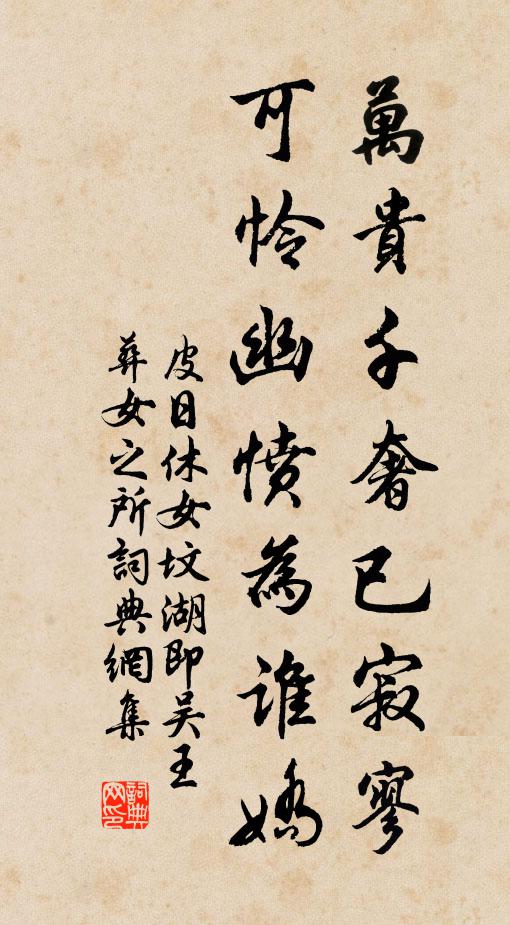 萬貴千奢已寂寥
可憐幽憤為誰嬌
皮日休女墳湖即吴王
葬女之所詞典網集
詞典网印